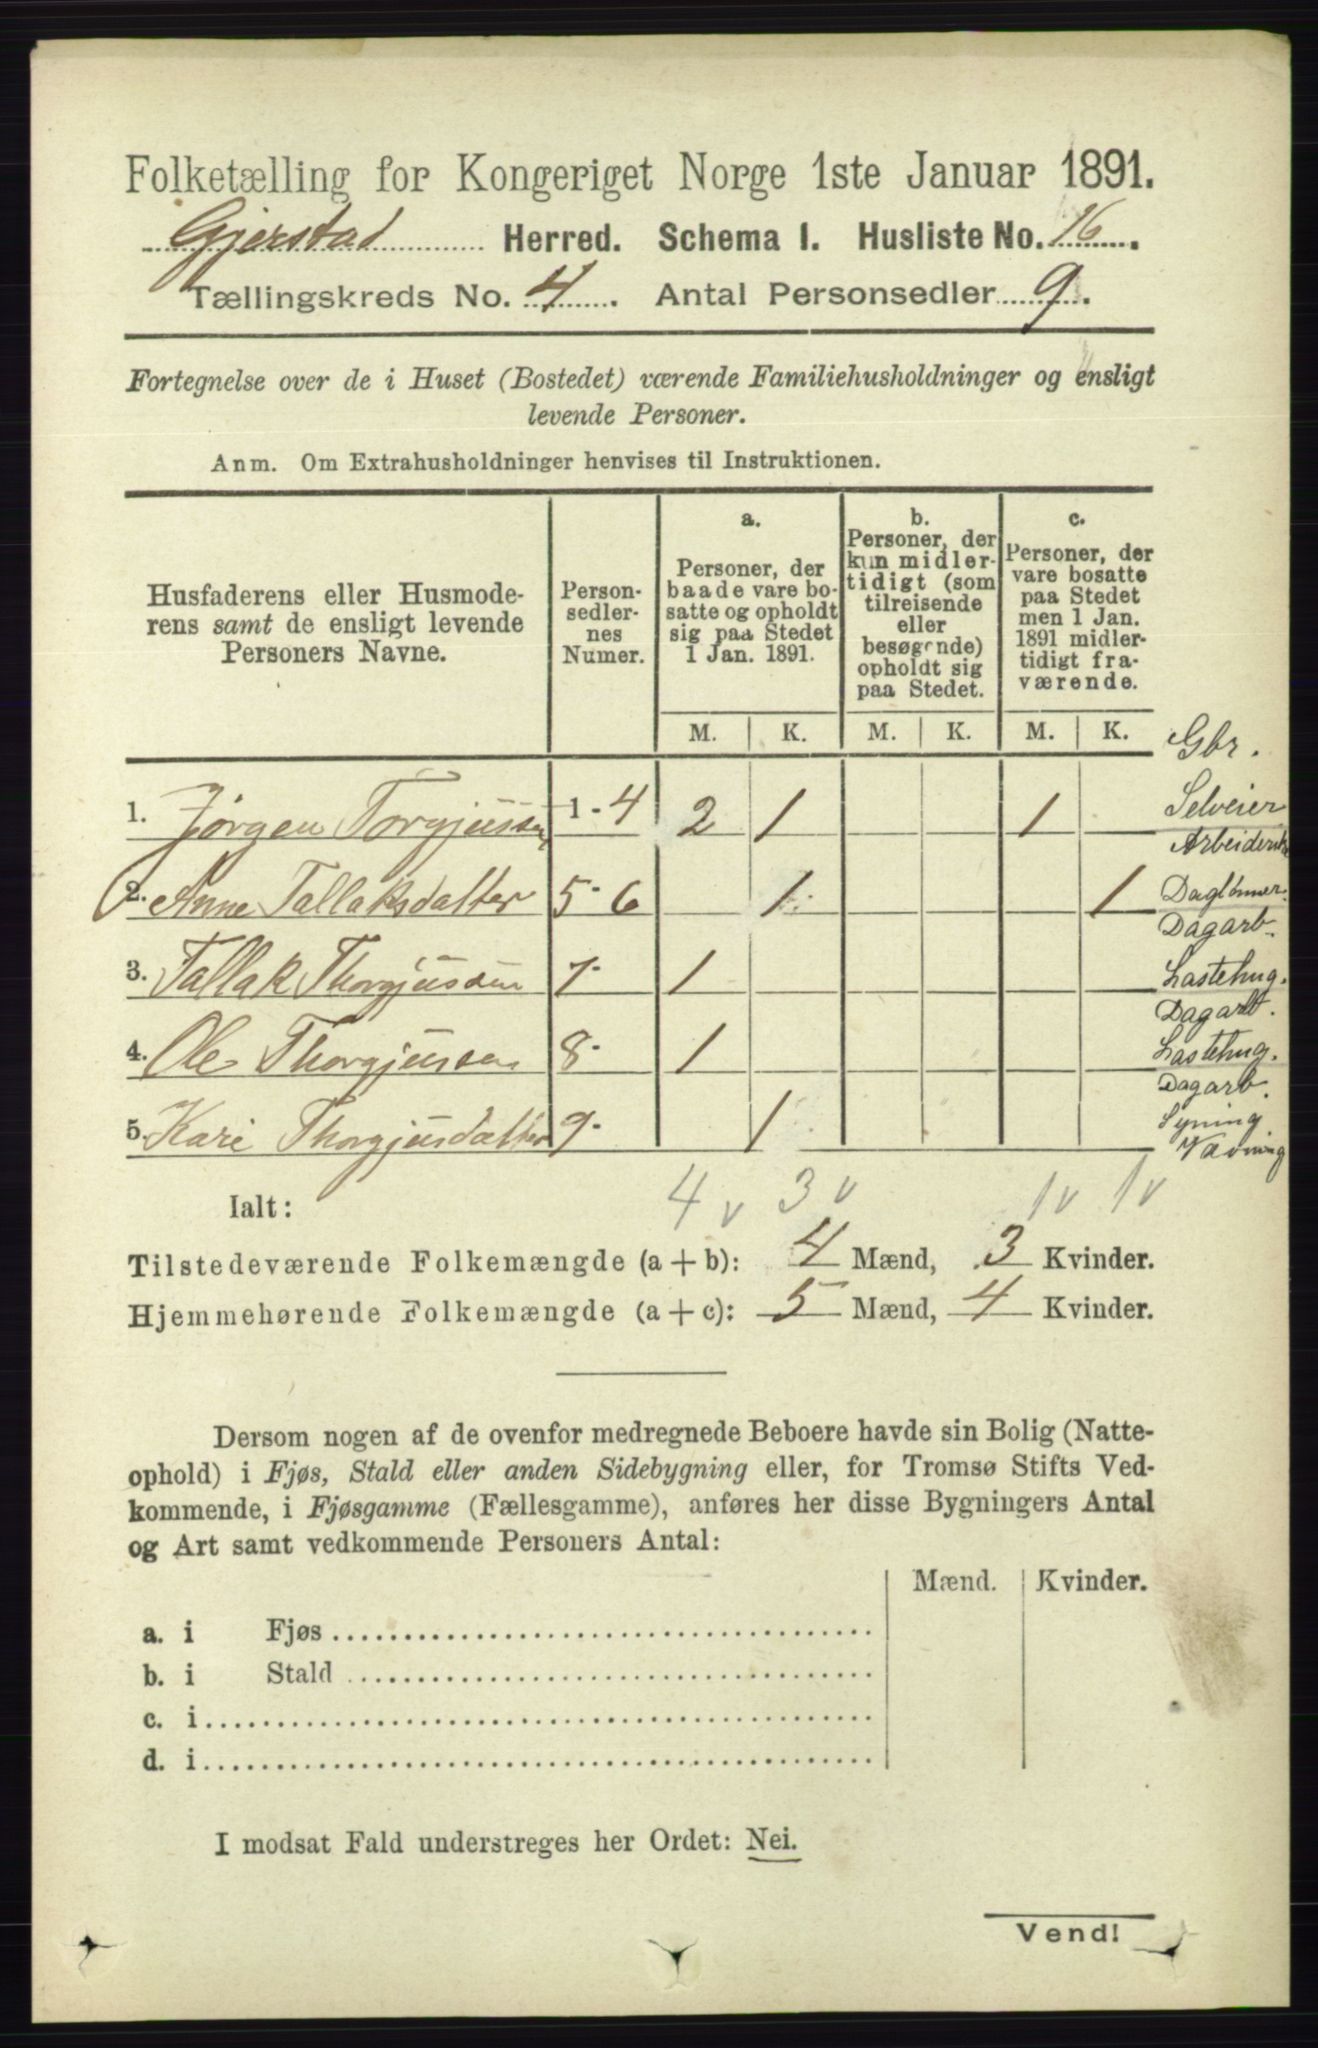 Folketælling for Kongeriget Norge 1ste Januar 1891.
Gjerstad Herred. Schema I. Husliste No. 16.
Tællingskreds No. 4. Antal Personsedler 9.
Fortegnelse over de i Huset (Bostedet) værende Familiehusholdninger og ensligt
levende Personer.
Anm. Om Extrahusholdninger henvises til Instruktionen.
Husfaderens eller Husmode-
rens samt de ensligt levende
Personers Navne.
Person-
sedler-
nes
Numer.
a.
Personer, der
baade vare bo-
satte og opholdt
sig paa Stedet
1 Jan. 1891.
b.
Personer, der
kun midler-
tidigt (som
tilreisende
eller
besøgende)
opholdt sig
paa Stedet.
c.
Personer, der
vare bosatte
paa Stedet
men 1 Jan.
1891 midler-
tidigt fra-
værende.
M. K. M. K. M. K.
Gbr.
1. Jørgen Torgjussen 1-4 2 1 1 Selveier
2. Anne Tallaksdatter 5-6 1 1 Dagլønner
Dagarb.
3. Tallak Thorgjussen 7- 1 Lastehug.
Dagarb.
4. Ole Thorgjussen 8- 1 Lastehug.
Dagarb.
5. Kari Thorgjusdatter 9- 1 Syning
Vævning
Ialt: 4 v 3 v 1 v 1 v
Tilstedeværende Folkemængde (a + b): 4 Mænd, 3 Kvinder.
Hjemmehørende Folkemængde (a + c): 5 Mænd, 4 Kvinder.
Dersom nogen af de ovenfor medregnede Beboere havde sin Bolig (Natte-
ophold) i Fjøs, Stald eller anden Sidebygning eller, for Tromsø Stifts Ved-
kommende, i Fjøsgamme (Fællesgamme), anføres her disse Bygningers Antal
og Art samt vedkommende Personers Antal:
Mænd. Kvinder.
a. i Fjøs
b. i Stald
c. i
d. i
I modsat Fald understreges her Ordet: Nei.
Vend!